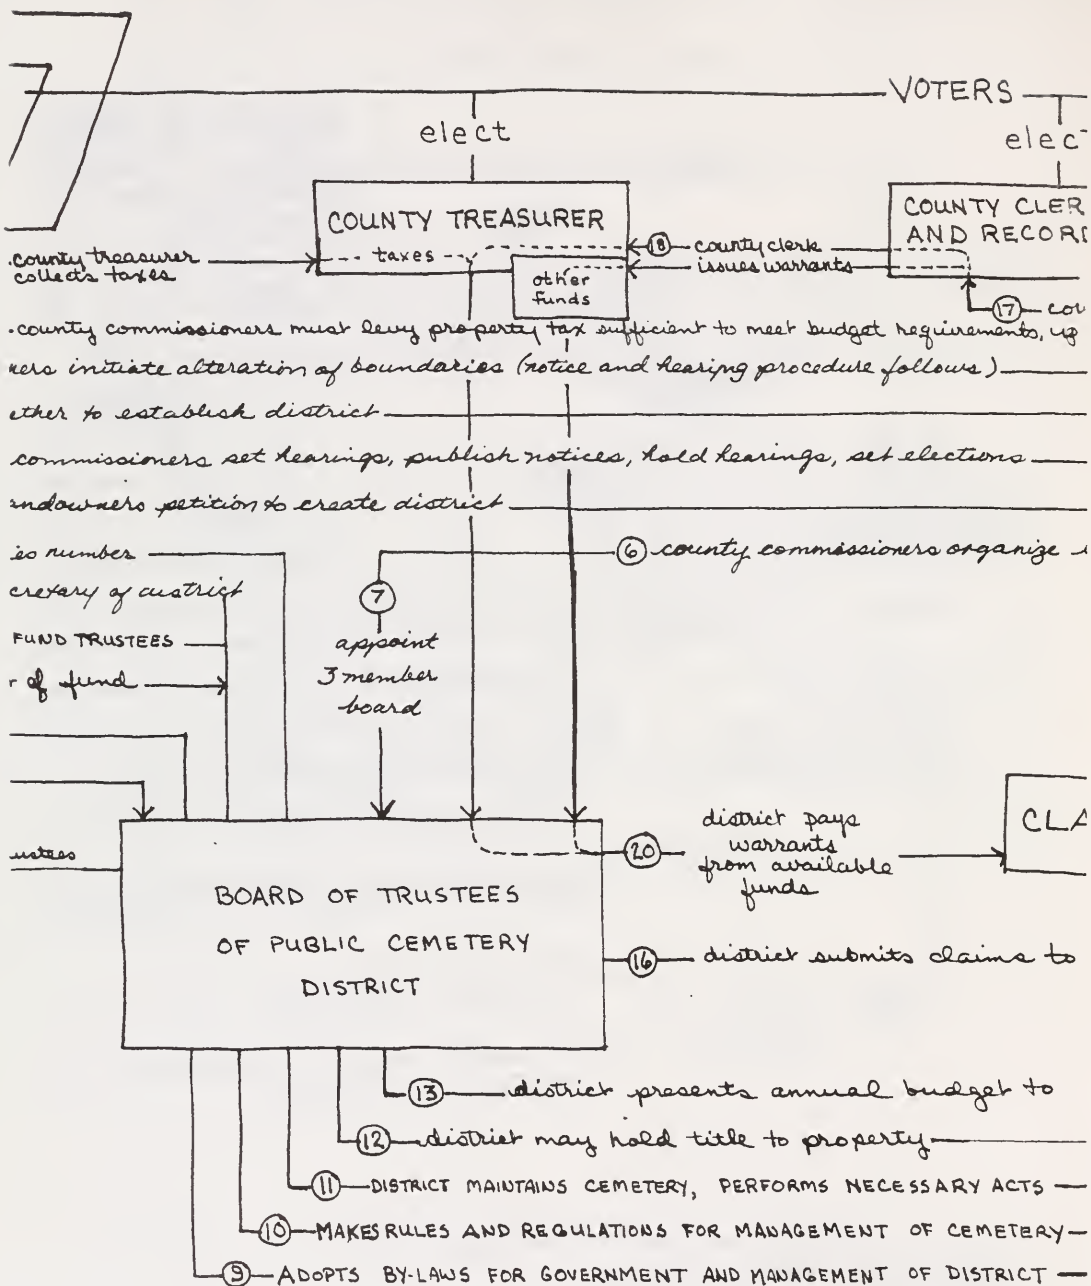 VOTERS
elect
elec
COUNTY TREASURER
taxes
other
funds
COUNTY CLER
AND RECOR
18 county clerk
issues warrants
.county treasurer
collects taxes
17
.county commissioners must levy property tax sufficient to meet budget requirements, up
ners initiate alteration of boundaries (notice and hearing procedure follows)
ether to establish district
commissioners set hearings, publish notices, hold hearings, set elections
andowners petition to create district
es number
6 county commissioners organize
cretary of district
7
FUND TRUSTEES
appoint
3 member
board
r of fund
ustees
BOARD OF TRUSTEES
OF PUBLIC CEMETERY
DISTRICT
20 district pays
warrants
from available
funds
CLA
16 district submits claims to
13 district presents annual budget to
12 district may hold title to property
11 DISTRICT MAINTAINS CEMETERY, PERFORMS NECESSARY ACTS
10 MAKES RULES AND REGULATIONS FOR MANAGEMENT OF CEMETERY
9 ADOPTS BY-LAWS FOR GOVERNMENT AND MANAGEMENT OF DISTRICT